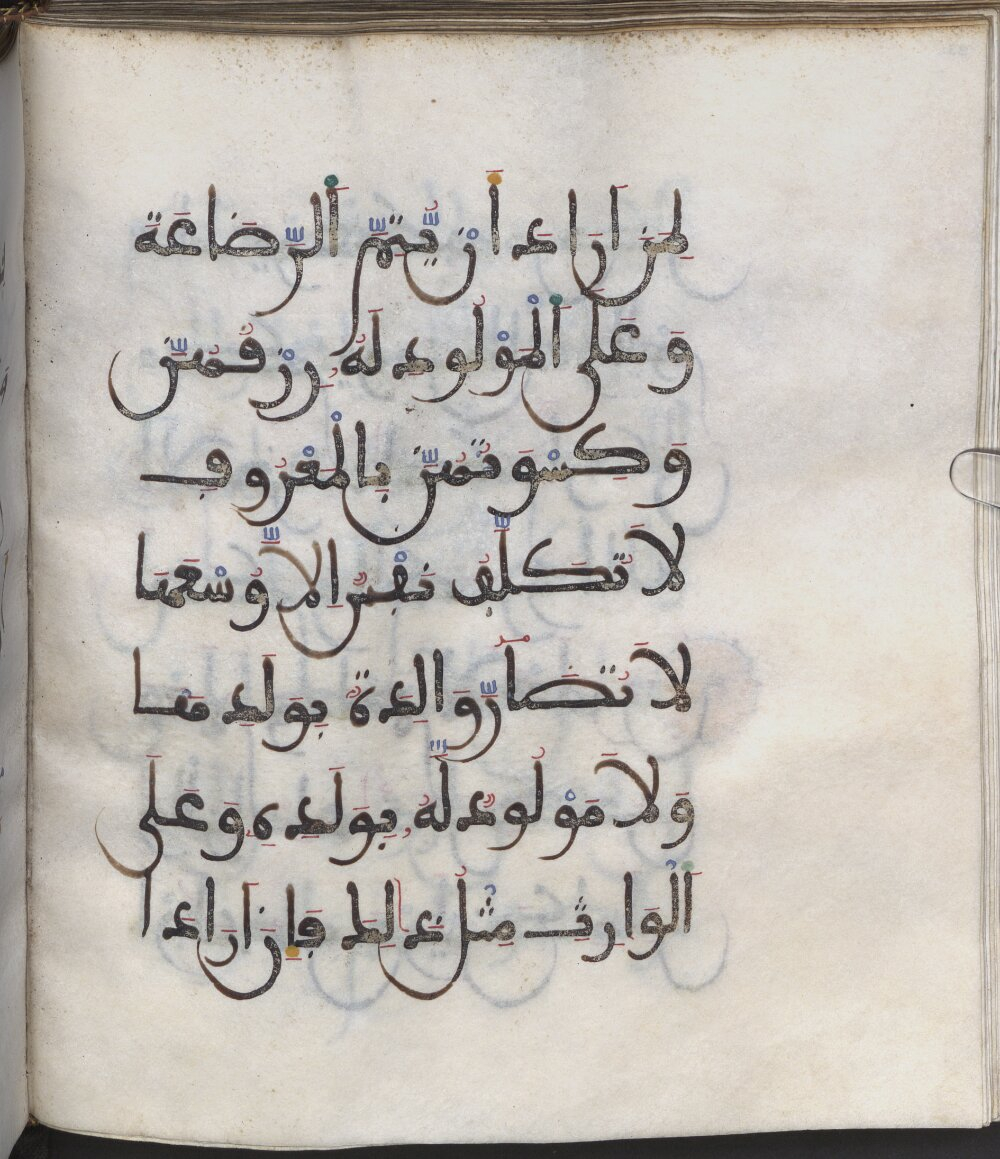 لِمَنَ اَرَادَ أَنْ يُّتِمَّ اَلرَّضَاعَةَ
وَعَلَى اَلْمَوْلُودِ لَهُۥ رِزْقُهُنَّ
وَكِسْوَتُهُنَّ بِالْمَعْرُوفِ
لَا تُكَلَّفُ نَفْسٌ اِلَّا وُسْعَهَا
لَا تُضَارَّ وَالِدَةُۢ بِوَلَدِهَا
وَلَا مَوْلُودٌ لَّهُۥ بِوَلَدِهِۦ وَعَلَى
اَلْوَارِثِ مِثْلُ ذَٰلِكَ فَإِنَ اَرَادَا